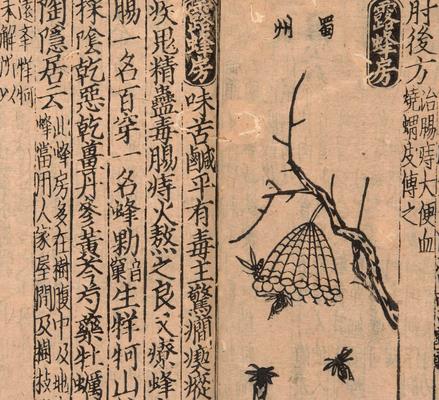 肘後方
治腸痔大便血
燒蝟皮傅之
露蜂房
蜀州
露蜂房
味苦鹹平有毒主驚癇瘈瘲
疾鬼精蠱毒腸痔火熬之良又療蜂
腸一名百穿一名蜂生牂牁山
採陰乾惡乾薑丹參黃芩芍藥牡蠣
陶隱居云
此蜂房多在樹腹中及地
蜂當用人家屋間及樹枝
遠牂牁
未解